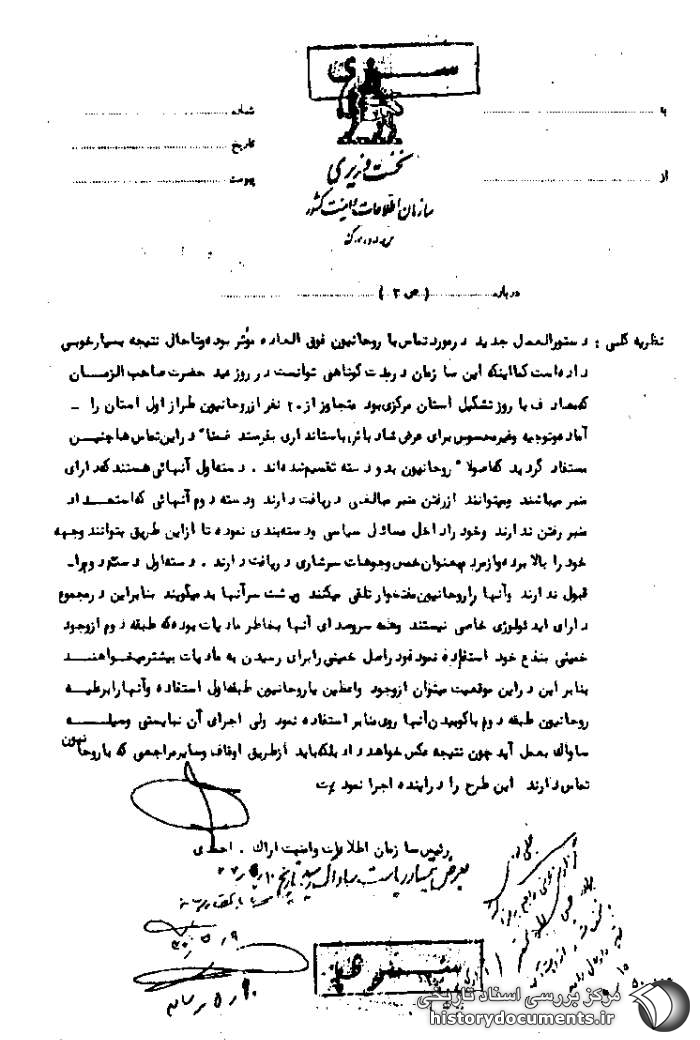 ســـری
شماره
به
تاریخ
از
پیوست
نخست وزیری
سازمان اطلاعات و امنیت کشور
درباره (ص ۲)
نظریه کلی : دستورالعمل جدید درمورد تماس با روحانیون فوق العاده مؤثر بوده وتاحال نتیجه بسیارخوبی
داده است کمااینکه این سازمان درمدت کوتاهی توانست در روز عید حضرت صاحب الزمـــان
که مصادف با روز تشکیل استان مرکزی بود متجاوز از ۲۰ نفر ازروحانیون طراز اول استان را -
آماده وتوجیه وغیرمحسوس برای عرض شادباش باستانداری بفرستد ضمنا" دراین تماس هاچنیـن
مستفاد گردید که اصولا" روحانیون بدو دسته تقسیم شده اند . دسته اول آنهائی هستند که دارای
منبر میباشند ومیتوانند ازرفتن منبر مبالغی دریافت دارند ودسته دوم آنهائی که استعـــداد
منبر رفتن ندارند وخود راداخل مسائل سیاسی ودسته بندی نموده تا ازاین طریق بتوانند وجهه
خود را بالا برده وازمردم بعنوان خمس وجوهات سرشاری دریافت دارند . دسته اول دسته دوم را-
قبول ندارند وآنها را روحانیون مفتخوار تلقی میکنند وپشت سرآنها بد میگویند بنابراین درمجموع
دارای ایدئولوژی خاصی نیستند وهمه سروصدای آنها بخاطر مادیات بوده که طبقه دوم ازوجود
خمینی بنفع خود استفاده نموده وداصل خمینی رابرای رسیدن به مادیات بیشترمیخواهنـــد
بنابراین دراین موقعیت میتوان ازوجود واعظین یاروحانیون طبقه اول استفاده وآنهارابرعلیـه
روحانیون طبقه دوم باکوبیدن آنها روی منابر استفاده نمود ولی اجرای آن نبایستی وسیلـــه
ساواک بعمل آید چون نتیجه عکس خواهد داد بلکه باید ازطریق اوقاف وسایرمراجعی که باروحانیون
تماس دارند این طرح را درآینده اجرا نمود
رئیس سازمان اطلاعات وامنیت اراک . احمدی
ســـری
مرکز بررسی اسناد تاریخی
historydocuments.ir